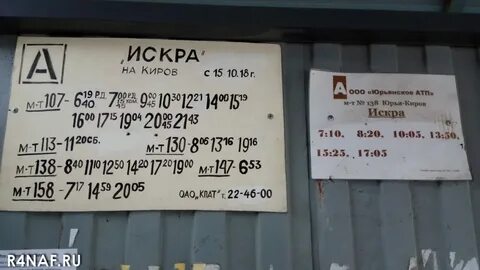 А "ИСКРА"
НА КИРОВ с 15.10.18г.
М-Т 107- 6 19 Р.Д. 6 40 7 00 Р.Д. 9 00 10 30 12 21 14 00 15 19
16 00 17 15 19 04 20 00 21 43
М-Т 113-11 20 СБ. М-Т 130-8 06 13 16 19 16
М-Т 138-8 40 11 10 12 50 14 20 17 20 19 00 М-Т 147-6 53
М-Т 158-7 17 14 59 20 05 ОАО„КПАТ" т. 22-46-00
А ООО «Юрьянское АТП»
м-т № 138 Юрья-Киров
Искра
7:10, 8:20, 10:05, 13:50,
15:25, 17:05
R4NAF.RU